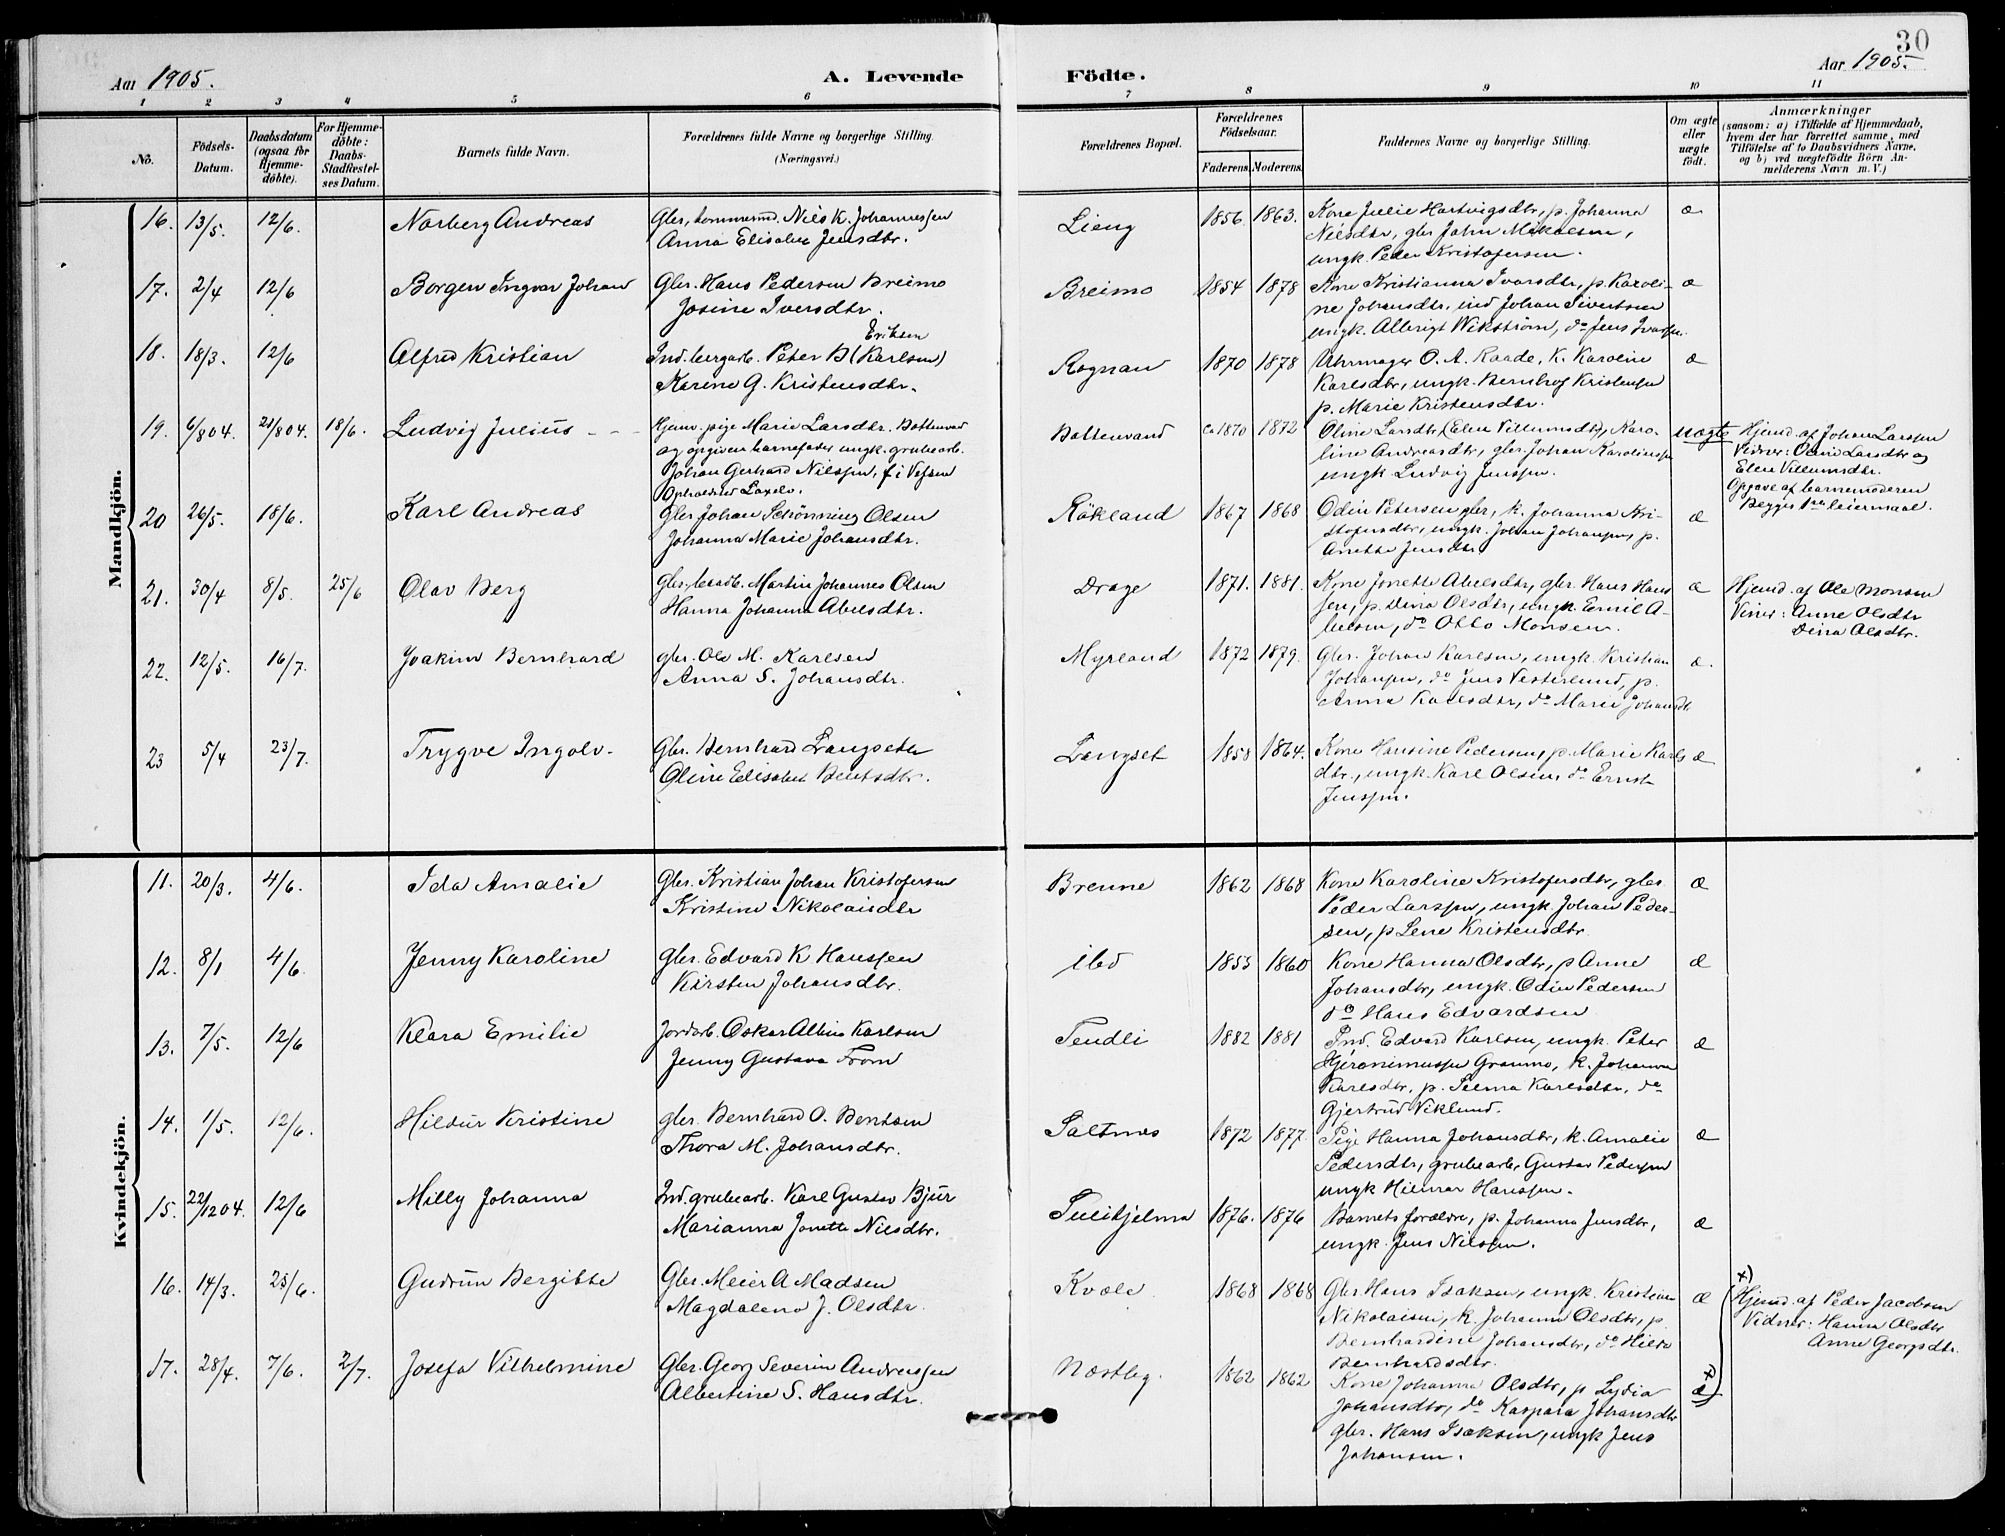 30
Aar 1905.
A. Levende
Födte.
Aar 1905.
1 2 3 4 5 6 7 8 9 10 11
No.
Födsels-Datum.
Daabsdatum (ogsaa for Hjemme-döbte).
For Hjemme-döbte: Daabs-Stadfæstel-ses Datum.
Barnets fulde Navn.
Forældrenes fulde Navne og borgerlige Stilling.
(Næringsvei.)
Forældrenes Bopæl.
Forældrenes Födselsaar.
Faderens. Moderens.
Faddernes Navne og borgerlige Stilling.
Om ægte eller uægte födt.
Anmærkninger
(saasom: a) i Tilfælde af Hjemmedaab,
hvem der har forrettet samme, med
Tilföielse af to Daabsvidners Navne,
og b) ved uægtefödte Börn An-
melderens Navn m. V.)
Mandkjön.
16. 13/5. 12/6. Norberg Andreas
Gbr, Nils K. Johannessen
Anna Elisabet Jensdtr.
Lieng 1856 1863.
Kone Julie Hartvigsdtr, p. Johanna
Nilsdtr, gbr John Mikalsen,
ungk. Peder Kristofersen.
æ
17. 2/4 12/6 Borgen Ingvar Johan
Gbr. Hans Pedersen Breimo
Josine Iversdtr.
Breimo 1854 1878
Kone Kristianna Ivarsdtr, p. Karoli-
ne Johansdtr, ind Johan Sivertsen
ungk. Albrigt Wikström, do Jens Ivarsen.
æ
18. 18/3. 12/6 Alfred Kristian
Eriksen
Ind. bergarb. Peter B (Karlsen)
Karine G. Kristensdtr.
Rognan 1870 1878
Uhrmager O. A. Raade, k. Karoline
Karlsdtr, ungk. Bernhof Kristensen
p. Marie Kristensdtr.
æ
19. 6/8 04. 21/8 04. 18/6. Ludvig Julius - - -
Hjemv. pige Marie Larsdtr. Bottenvand
og opgiven barnefader ungk. grubearb.
Johan Gerhard Nilssen, f. i Vefsen
Opholdssted Laxelv.
Bottenvand ca 1870 1872
Oline Larsdtr, Elen Villumsdtr, Karo-
line Andreasdtr, gbr. Johan Karoliussen
ungk Ludvig Jenssen.
uægte
Hjemd. af Johan Larssen
Vidner: Oline Larsdtr og
Elen Villumsdtr.
Opgave af barnemoderen
Begges 1ste leiermaal.
20 26/5. 18/6. Karl Andreas
Gbr Johan Schönning Olsen
Johanna Marie Johansdtr.
Rökland 1867 1868
Odin Petersen gbr, k. Johanna Kri-
stofersdtr, ungk. Johan Johansen, p.
Anette Jensdtr
æ
21. 30/4 8/5. 25/6 Olav Berg
Martin Johannes Olsen
Hanna Johanna Abelsdtr.
Drage 1871. 1881.
Kone Jonette Abelsdtr, gbr Hans Hans
sen, p. Dina Olsdtr, ungk. Emil A-
belsen, do Otto Monsen.
æ
Hjemd. af Ole Monsen
Viner: Anne Olsdtr
Dina Olsdtr.
22. 12/5. 16/7. Joakim Bernhard
gbr. Ole M. Karlsen
Anna S. Johansdtr.
Myrland 1872 1879.
Gbr. Johan Karlsen, ungk. Kristian
Johansen, do Jens Vesterlund, p.
Anna Karlsdtr, do Marie Johansdt.
æ.
23 5/4 23/7. Trygve Ingolv.
Gbr. Bernhard Langseth
Oline Elisabet Bentsdtr.
Langset 1858 1864.
Kone Hansine Pedersen, p. Marie Karls
dtr., ungk. Karl Olsen, do Ernst
Jenssen.
æ
Kvindekjön.
11. 20/3. 4/6. Ida Amalie
Gbr. Kristian Johan Kristofersen
Kristine Nikolaisdtr
Brenne 1862 1868
Kone Karoline Kristofersdtr, gbr.
Peder Larssen, ungk. Johan Peder-
sen, p Lene Kristensdtr.
æ
12. 8/1 4/6. Jenny Karoline
gbr. Edvard K Hanssen
Kirsten Johansdtr.
ibd 1853 1860
Kone Hanna Olsdtr, p Anne
Johansdtr, ungk. Odin Pedersen
do Hans Edvardsen
æ
13. 7/5. 12/6 Klara Emilie
Jordarb. Oskar Albin Karlsen
Jenny Gustava From
Tendli 1882 1881
Ind. Edvard Karlsen, ungk. Peter
Hjeronimussen Granmo, k. Johanna
Karlsdtr, p. Selma Karlsdtr, do
Gjertrud Viklund.
æ
14. 1/5. 12/6. Hildur Kristine
gbr. Bernhard O. Bentsen
Thora M. Johansdtr.
Saltnes 1872 1877.
Pige Hanna Johansdtr, k. Amalie
Pedersdtr, grubearb. Gustav Pedersen
ungk Hilmar Hanssen.
æ
15. 22/12 04. 12/6 Milly Johanna
Ind. grubearb. Karl Gustav Bjur
Marianna Jonette Nilsdtr.
Sulitjelma 1876. 1876
Barnets forældre, p. Johanna Jensdtr,
ungk. Jens Nilssen.
æ
16. 14/3. 25/6. Gudrun Bergitte
Gbr. Meier A Madsen
Magdalena J. Olsdtr.
Kvæle 1868 1868
Gbr. Hans Isaksen, ungk. Kristian
Nikolaisen, k. Johanna Olsdtr, p.
Bernhardine Johansdtr, do Hilda
Bernhardsdtr.
æ
x)
Hjemd. af Peder Jacobsen
Vidner: Hanna Olsdtr
Anne Georgsdtr.
17. 28/4. 7/6. 2/7. Josefa Vilhelmine
Gbr. Georg Severin Andreassen
Albertine S. Hansdtr.
Næstby. 1862 1862
Kone Johanna Olsdtr, p Lydia
Johansdtr, do Kaspara Johansdtr
gbr. Hans Isaksen, ungk Jens
Johansen.
æ x)